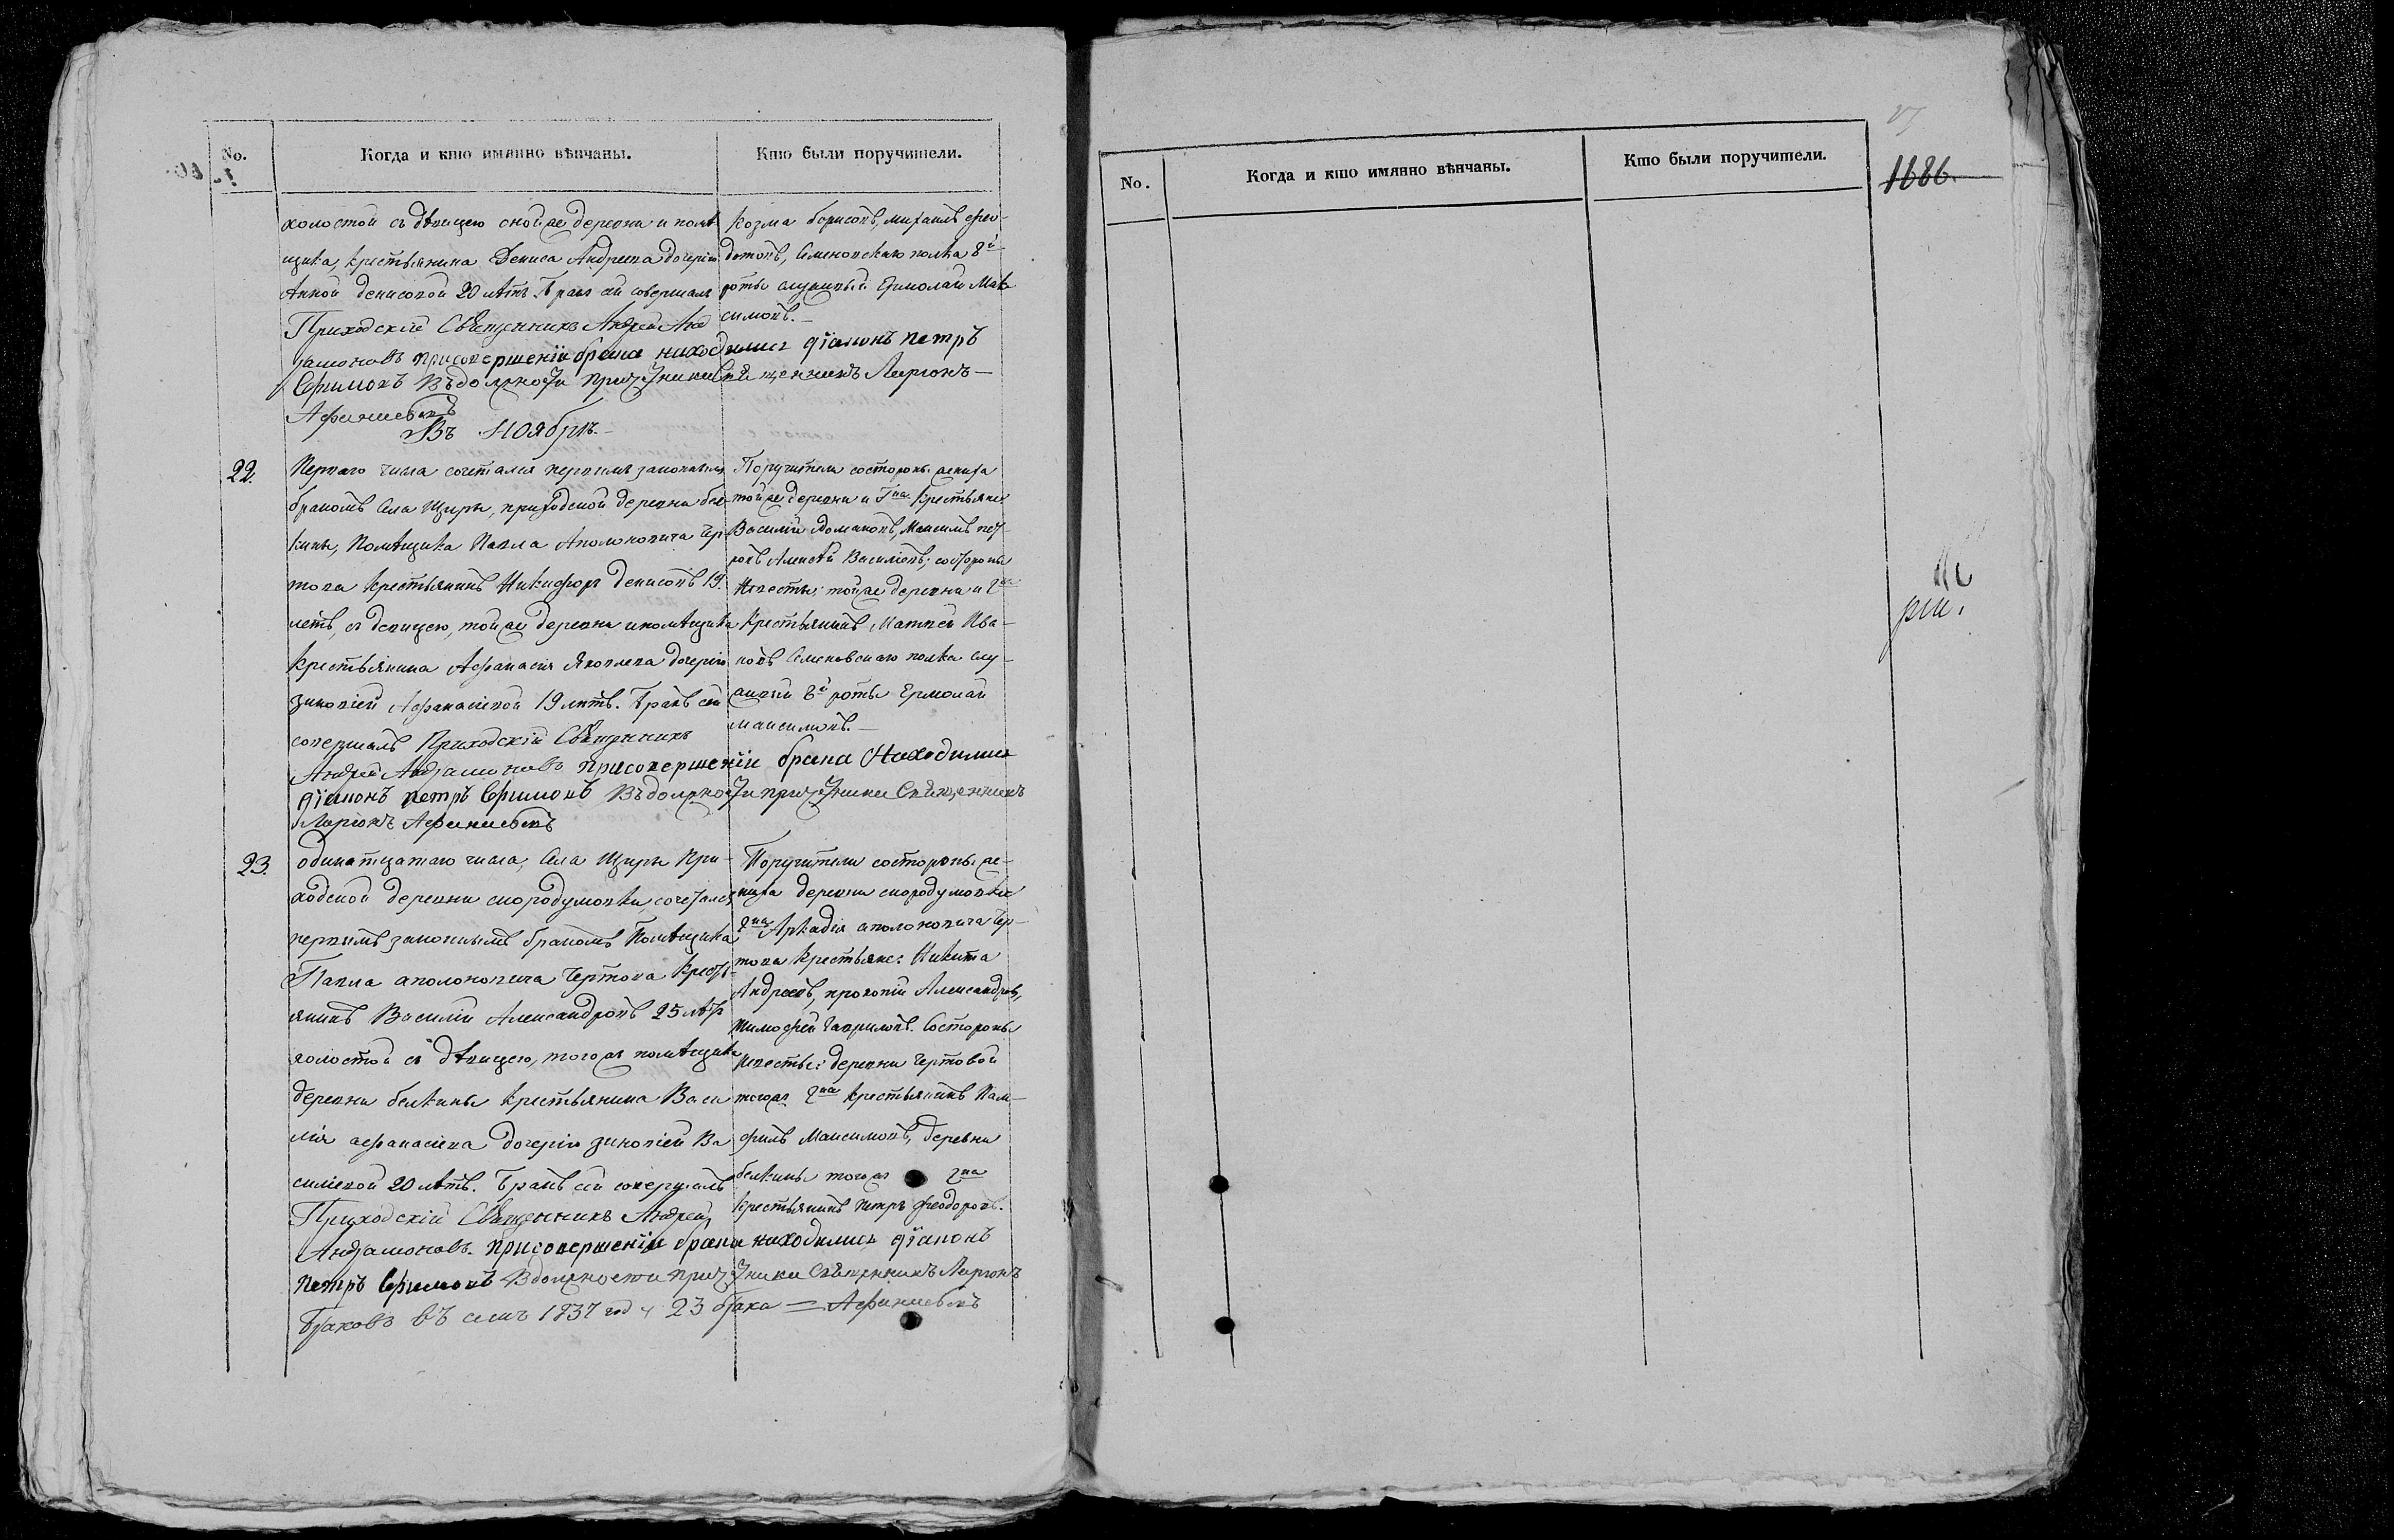 No.
Когда и кто имянно вѣнчаны.
Кто были поручители.
холостой съ дѣвицею тойже деревни и помѣ
щика, крестьянина Дениса Андреева дочерію
Анной Денисовой 20 лѣтъ. Бракъ сей совершалъ
Приходскій Священникъ Андрей
при совершеніи брака находились діаконъ петръ
Ефимовъ Въ должности причетника Священникъ Ларіонъ
Афанасьевъ
Козма борисовъ, михаилъ фео-
дотовъ, Семеновскаго полка 8й
роты служивый Ермолай Мак
симовъ.
Въ Ноябрѣ.
22.
Перваго числа сочетался первымъ законнымъ
бракомъ Села Щиръ, приходской деревни бел-
кины, Помѣщика Павла Аполоновича Чер
това крестьянинъ Никифоръ Денисовъ 19.
летъ, съ девицею, тойже деревни и помѣщика
крестьянина Афанасія Яковлева дочерію
зиновіей Афанасіевой 19 лѣтъ. Бракъ сей
совершалъ Приходскій Священникъ
Андрей при совершеніи брака Находились
діаконъ петръ Ефимовъ Въ должности причетника Священникъ
Ларіонъ Афанасьевъ
Поручители состороны жениха
тойже деревни и Гна крестьяне
Василій Домановъ, Максимъ пет
ровъ Алексѣй Василіевъ; состороны
Невесты: тойже деревни и Гна
Крестьянинъ Матвей Ива-
новъ Семеновскаго полка слу-
живый 8й роты Ермолай
максимовъ.
23.
Одинатцатаго числа, Села Щиръ При-
ходской деревни скородумовки, сочетался
первымъ законнымъ бракомъ Помѣщика
Павла аполоновича Чертова Кресть-
янинъ Василій Александровъ 25 лѣтъ
холостой съ дѣвицею, тогожъ помѣщика
деревни белкины крестьянина Васи
лія афанасіева дочерію зиновіей Ва
силіевой 20 лѣтъ. Бракъ сей совершалъ
Приходскій Священникъ Андрей
при совершеніи брака находились діаконъ
петръ Ефимовъ В должности причетника Священникъ Ларіонъ
Браковъ въ семъ 1837 год 23 брака = Афанасьевъ
Поручители состороны же-
ниха деревни скородумовки
Гна Аркадія аполоновича Чер-
това Крестьяне: Никита
Андреевъ, прокопій Александровъ,
тимофей Гавриловъ. Состороны
Невесты: деревни Чертовой
тогожъ Гна крестьянинъ Пам-
филъ Максимовъ, деревни
белкины тогожъ Гна
крестьянинъ Петръ феодоровъ.
No.
Когда и кто имянно вѣнчаны.
Кто были поручители.
1686.